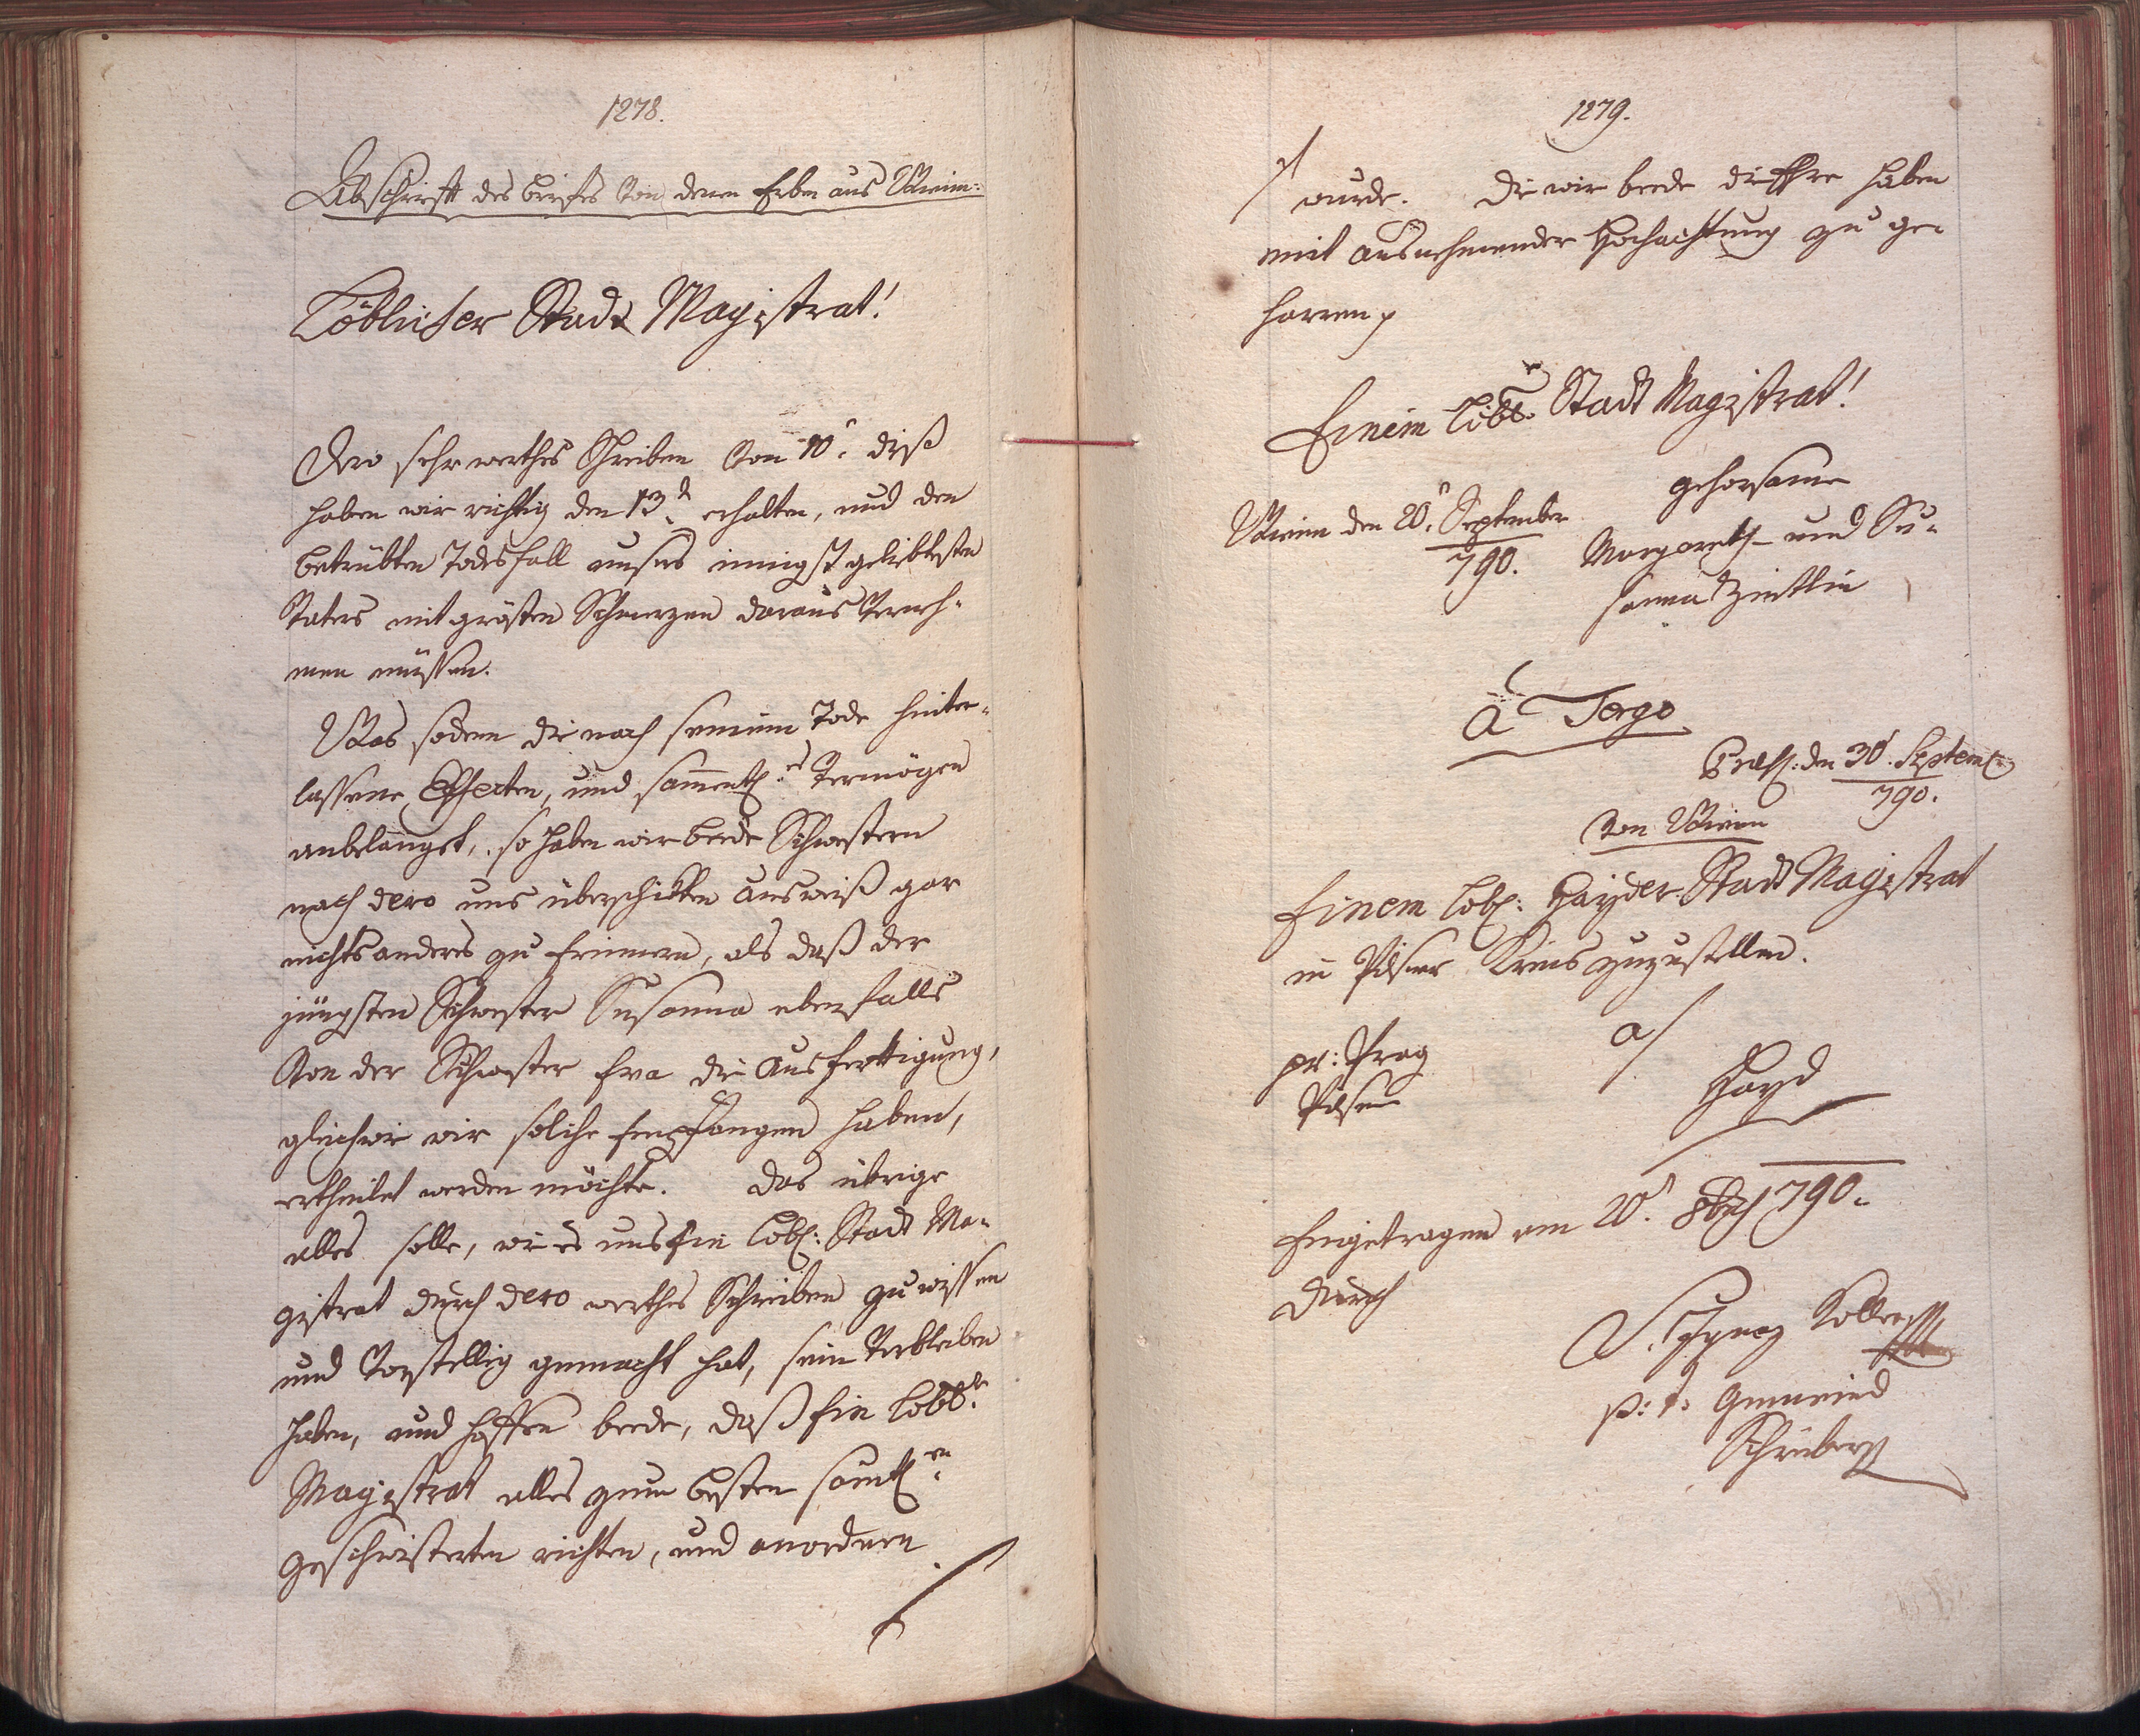 1278.
Abschrift des briefes von denen Erben aus Wienn:
Löblicher Stadt Magistrat!
Dero sehr werthes Schreiben von 10t diß
haben wir richtig den 13t erhalten, und den
betrübten Todesfall unsers innigst geliebtesten
Vaters mit grösten Schmerzen daraus verneh-
men müssen.
Was sodenn die nach seinem Tode hinter-
lassene Effecten, und samentl:es Vermögen
anbelangt, so haben wir beede Schwestern
nach dero uns überschikten ausweiß gar
nichts anderes zu Erinnern, als daß der
jüngsten Schwester Susanna ebenfalls
von der Schwester Eva die Ausfertigung,
gleichwie wir solche Empfangen haben,
ertheilet werden möchte. Das übrige
alles solle, wie es uns Ein löbl: Stadt Ma-
gistrat durch dero werthes Schreiben zu wissen
und vorstellig gemacht hat, sein Verbleiben
haben, und hoffen beede, daß Ein löbl:r
Magistrat alles zum besten sämtl:en
Geschwisterten richten, und anordnen
1279.
wurde. Die wir beede die Ehre haben
mit ausnehmender Hochachtung zu ge-
harren
Einem löbl:n Stadt Magistrat!
gehorsame
Wienn den 20t September
790. Margareth- und Su-
sanna
à Tergo
Praes: den 30t Septem
790.
von Wienn
Einem löbl: Hayder Stadt Magistrat
in Pilsner Kreis zuzustellen.
pr: Prag a/
Pilsen Hayd
Eingetragen am 20t 8br 790.
durch
Ignaz Koller
p: t: Gemeind
Schreiber